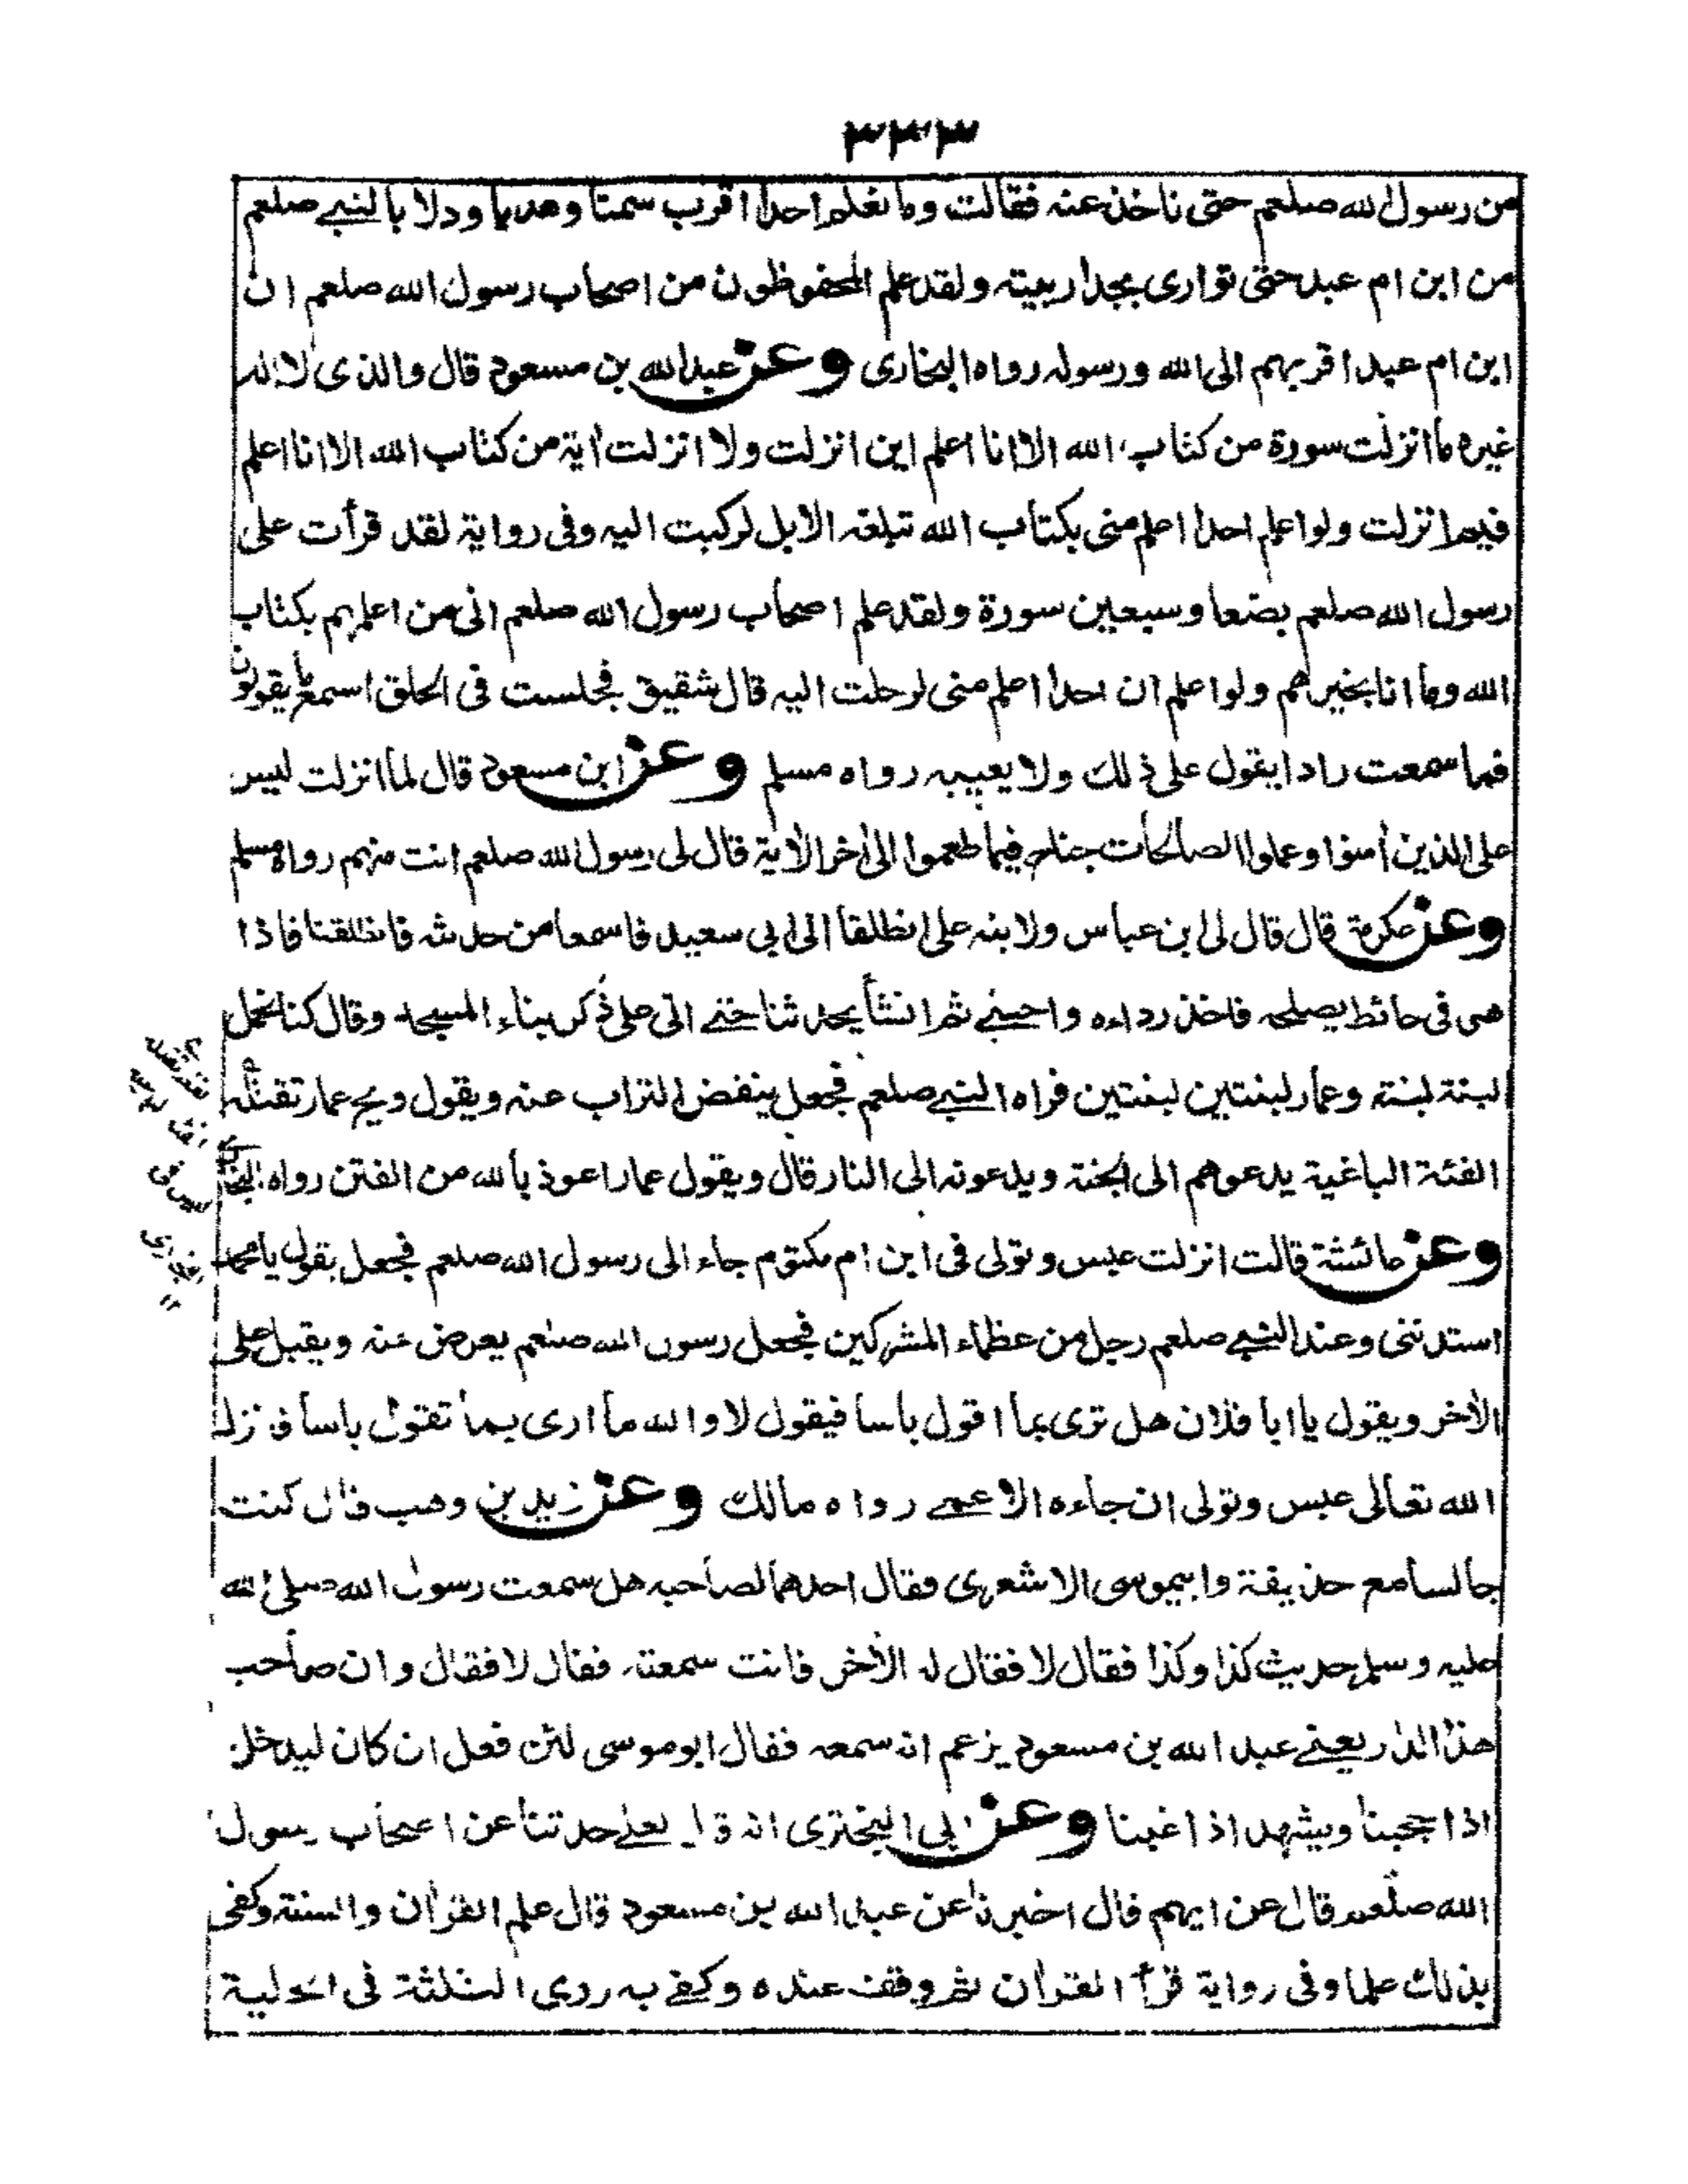 ٣٣٣
من رسول الله صلعم حتى ناخذ عنه فقالت وما نعلم احدا اقرب سمتا وهديا ودلا بالنبي صلعم
من ابن ام عبد حتى توارى بجدار بيته ولقد علم المحفوظون من اصحاب رسول الله صلعم ان
ابن ام عبد اقربهم الى الله ورسوله رواه البخارى وعن عبد الله بن مسعود قال والذى لا اله
غيره ما انزلت سورة من كتاب الله الا انا اعلم اين انزلت ولا انزلت اية من كتاب الله الا انا اعلم
فيما انزلت ولو اعلم احدا اعلم منى بكتاب الله تبلغه الابل لركبت اليه وفى رواية لقد قرأت على
رسول الله صلعم بضعا وسبعين سورة ولقد علم اصحاب رسول الله صلعم انى من اعلمهم بكتاب
الله وما انا بخيرهم ولو اعلم ان احدا اعلم منى لرحلت اليه قال شقيق فجلست فى الحلق اسمع ما يقولون
فما سمعت رادا يقول على ذلك ولا يعيبه رواه مسلم وعن ابن مسعود قال لما انزلت ليس
على الذين أمنوا وعملوا الصالحات جناح فيما طعموا الى أخر الأية قال لى رسول الله صلعم انت منهم رواه مسلم
وعن عكرمة قال قال لى ابن عباس ولابنه على انطلقا الى ابى سعيد فاسمعا من حديثه فانطلقنا فاذا
هو فى حائط يصلحه فاخذ رداءه واحتبى ثم انشأ يحدثنا حتى اتى على ذكر بناء المسجد وقال كنا نحمل
لبنة لبنة وعمار لبنتين لبنتين فراه النبى صلعم فجعل ينفض التراب عنه ويقول ويح عمار تقتله
الفئة الباغية يدعوهم الى الجنة ويدعونه الى النار قال ويقول عمار اعوذ بالله من الفتن رواه البخارى
وعن عائشة قالت انزلت عبس وتولى فى ابن ام مكتوم جاء الى رسول الله صلعم فجعل يقول يا محمد
استدننى وعند النبى صلعم رجل من عظماء المشركين فجعل رسول الله صلعم يعرض عنه ويقبل على
الأخر ويقول يا ابا فلان هل ترى بما اقول باسا فيقول لا والله ما ارى بما تقول باسا فنزل
الله تعالى عبس وتولى ان جاءه الاعمى رواه مالك وعن زيد بن وهب قال كنت
جالسا مع حذيفة وابى موسى الاشعرى فقال احدهما لصاحبه هل سمعت رسول الله صلى الله
عليه وسلم حديث كذا وكذا فقال لا فقال له الأخر فانت سمعته فقال لا فقال وان صاحب
هذا الدار يعنى عبد الله بن مسعود يزعم انه سمعه فقال ابو موسى لئن فعل ان كان ليدخل
اذا حجبنا ويشهد اذا غبنا وعن ابى البخترى انه قال لعلى حدثنا عن اصحاب رسول
الله صلعم قال عن ايهم قال اخبرنا عن عبد الله بن مسعود قال علم القرأن والسنة وكفى
بذلك علما وفى رواية قرأ القرأن ثم وقف عنده وكفى به روى الثلثة فى الحلية